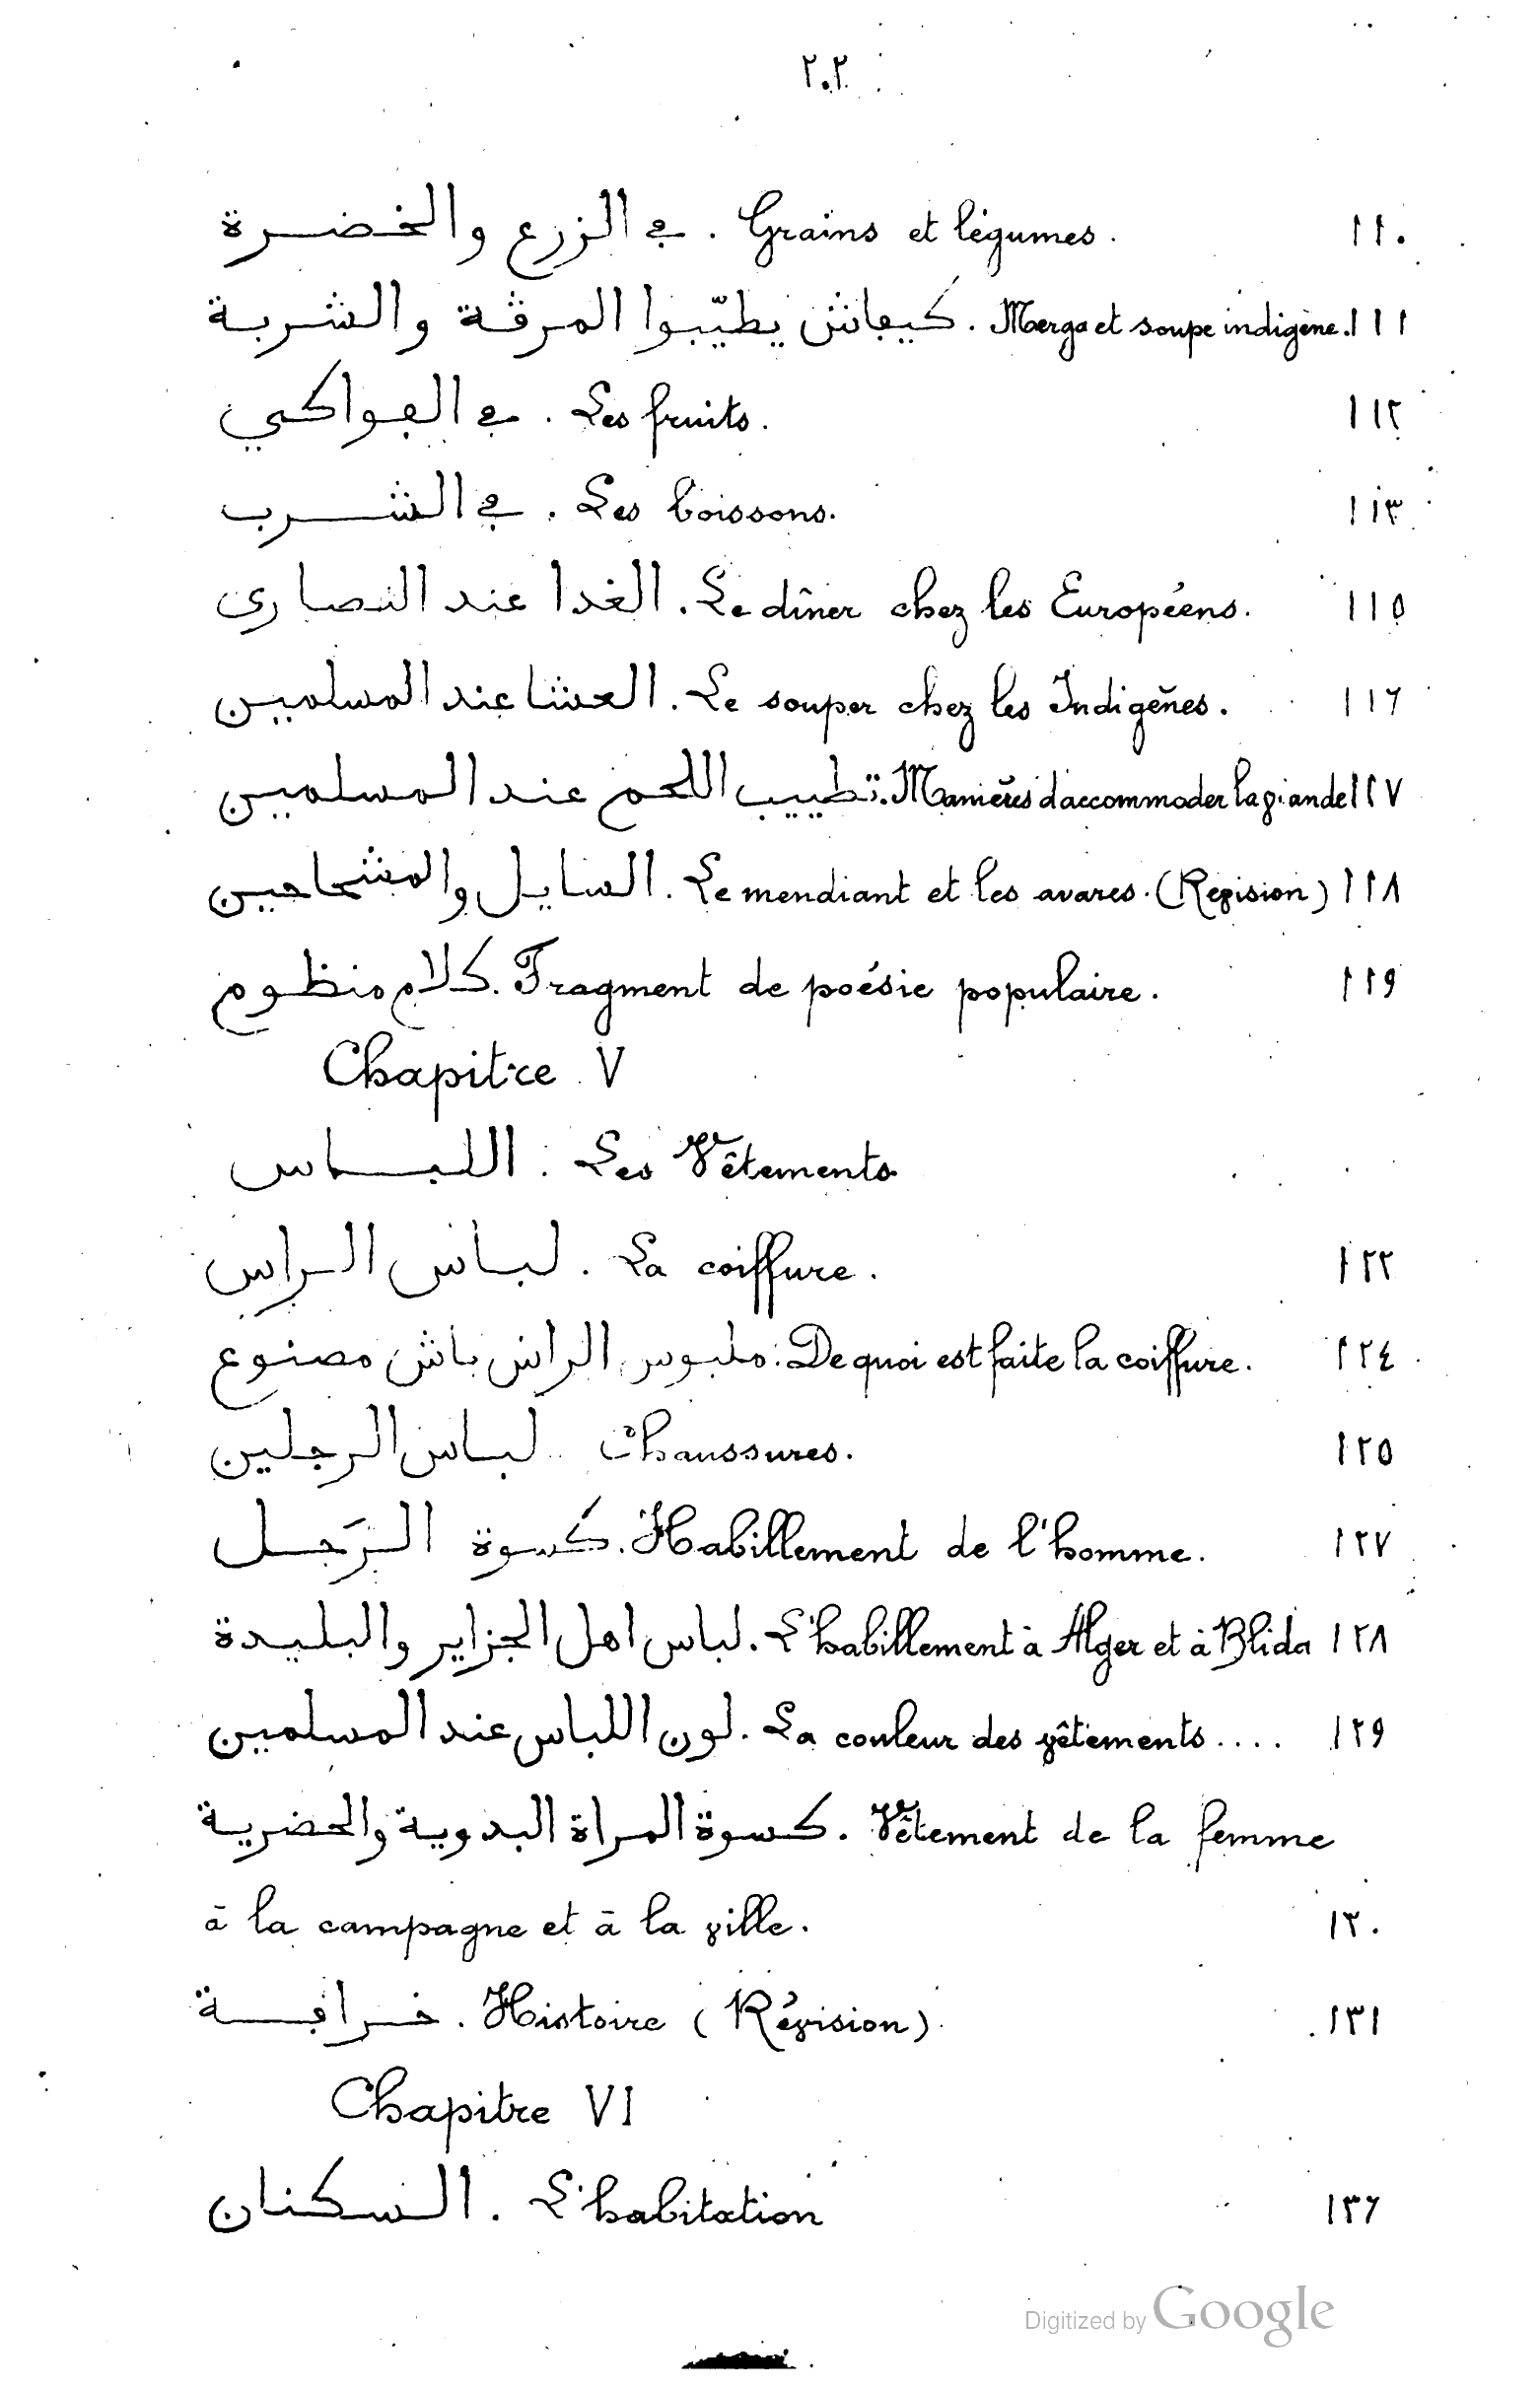 ٢٠٢
في الزرع والخضرة . Grains et légumes. ١١٠
كيڢاش يطيّبوا المرڧة والشربة . Merga et soupe indigène. ١١١
ڢي الڢواكي . Les fruits. ١١٢
ڢي الشرب . Les boissons. ١١٣
الغدا عند النصارى . Le dîner chez les Européens. ١١٥
العشا عند المسلمين . Le souper chez les Indigènes. ١١٦
تطييب اللحم عند المسلمين . Manières d'accommoder la viande ١١٧
السايل والمشحاحين . Le mendiant et les avares. (Revision) ١١٨
كلام منظوم . Fragment de poésie populaire. ١١٩
Chapitre V
اللباس . Les Vêtements
لباس الراس . La coiffure. ١٢٢
ملبوس الراس باش مصنوع . De quoi est faite la coiffure. ١٢٤
لباس الرجلين . Chaussures. ١٢٥
كسوة الرَجل . Habillement de l'homme. ١٢٧
لباس اهل الجزاير والبليدة . L'habillement à Alger et à Blida ١٢٨
لون اللباس عند المسلمين . La couleur des vêtements .... ١٢٩
كسوة المراة البدوية والحضرية . Vêtement de la femme
à la campagne et à la ville. ١٣٠
خراڢة . Histoire (Révision) ١٣١
Chapitre VI
السكنان . L'habitation ١٣٦
Digitized by Google